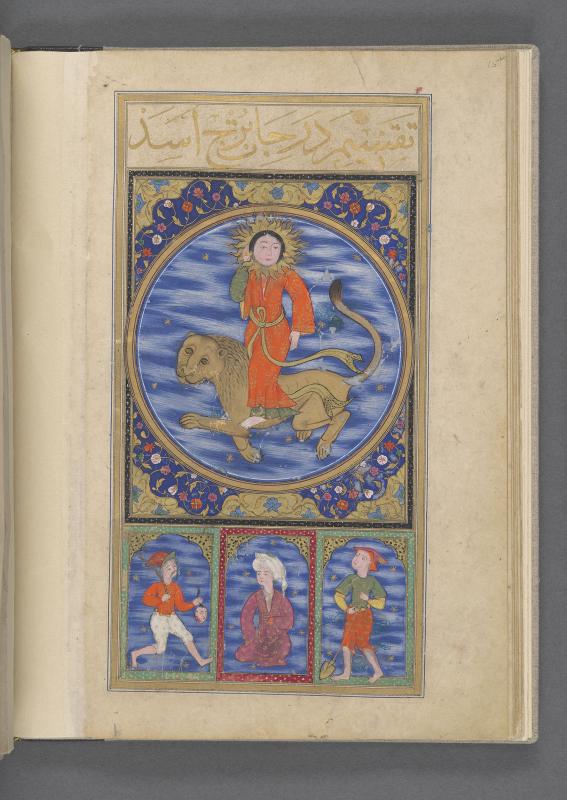 تقسیم درجات برج اسد